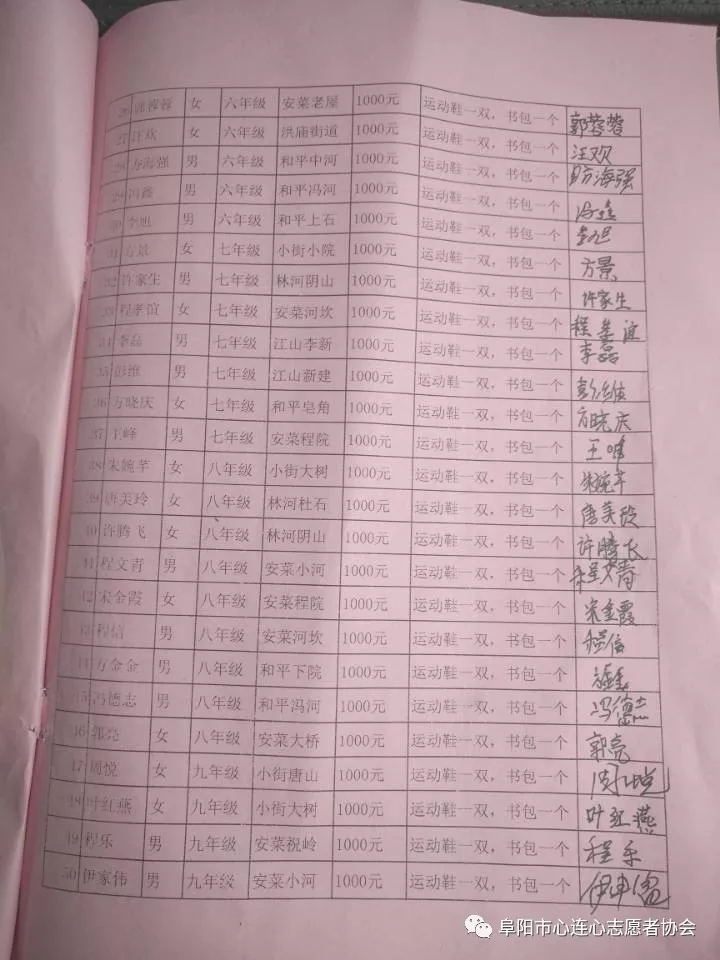 26 郭蓉蓉 女 六年级 安菜老屋 1000元 运动鞋一双，书包一个 郭蓉蓉
27 汪欢 女 六年级 洪庙街道 1000元 运动鞋一双，书包一个 汪欢
28 方海强 男 六年级 和平中河 1000元 运动鞋一双，书包一个 防海强
29 冯鑫 男 六年级 和平冯河 1000元 运动鞋一双，书包一个
30 李旭 男 六年级 和平上石 1000元 运动鞋一双，书包一个 李旭
31 方景 女 七年级 小街小院 1000元 运动鞋一双，书包一个 方景
32 许家生 男 七年级 林河阴山 1000元 运动鞋一双，书包一个 许家生
33 程孝谊 女 七年级 安菜河坎 1000元 运动鞋一双，书包一个 程孝谊
34 李磊 男 七年级 江山李新 1000元 运动鞋一双，书包一个 李磊
35 彭维 男 七年级 江山新建 1000元 运动鞋一双，书包一个 彭维
36 方晓庆 女 七年级 和平皂角 1000元 运动鞋一双，书包一个 方晓庆
37 王峰 男 七年级 安菜程院 1000元 运动鞋一双，书包一个 王峰
38 朱婉芊 女 八年级 小街大树 1000元 运动鞋一双，书包一个 朱婉芊
39 唐美玲 女 八年级 林河杜石 1000元 运动鞋一双，书包一个 唐美玲
40 许腾飞 女 八年级 林河阴山 1000元 运动鞋一双，书包一个 许腾飞
41 程文青 男 八年级 安菜小河 1000元 运动鞋一双，书包一个 程文青
42 宋金霞 女 八年级 安菜程院 1000元 运动鞋一双，书包一个 宋金霞
43 程信 男 八年级 安菜河坎 1000元 运动鞋一双，书包一个 程信
44 方金金 男 八年级 和平下院 1000元 运动鞋一双，书包一个
45 冯德志 男 八年级 和平冯河 1000元 运动鞋一双，书包一个 冯德志
46 郭亮 女 八年级 安菜大桥 1000元 运动鞋一双，书包一个 郭亮
47 周悦 女 九年级 小街唐山 1000元 运动鞋一双，书包一个 周悦
48 叶红燕 女 九年级 小街大树 1000元 运动鞋一双，书包一个 叶红燕
49 程乐 男 九年级 安菜祝岭 1000元 运动鞋一双，书包一个 程乐
50 伊家伟 男 九年级 安菜小河 1000元 运动鞋一双，书包一个
阜阳市心连心志愿者协会